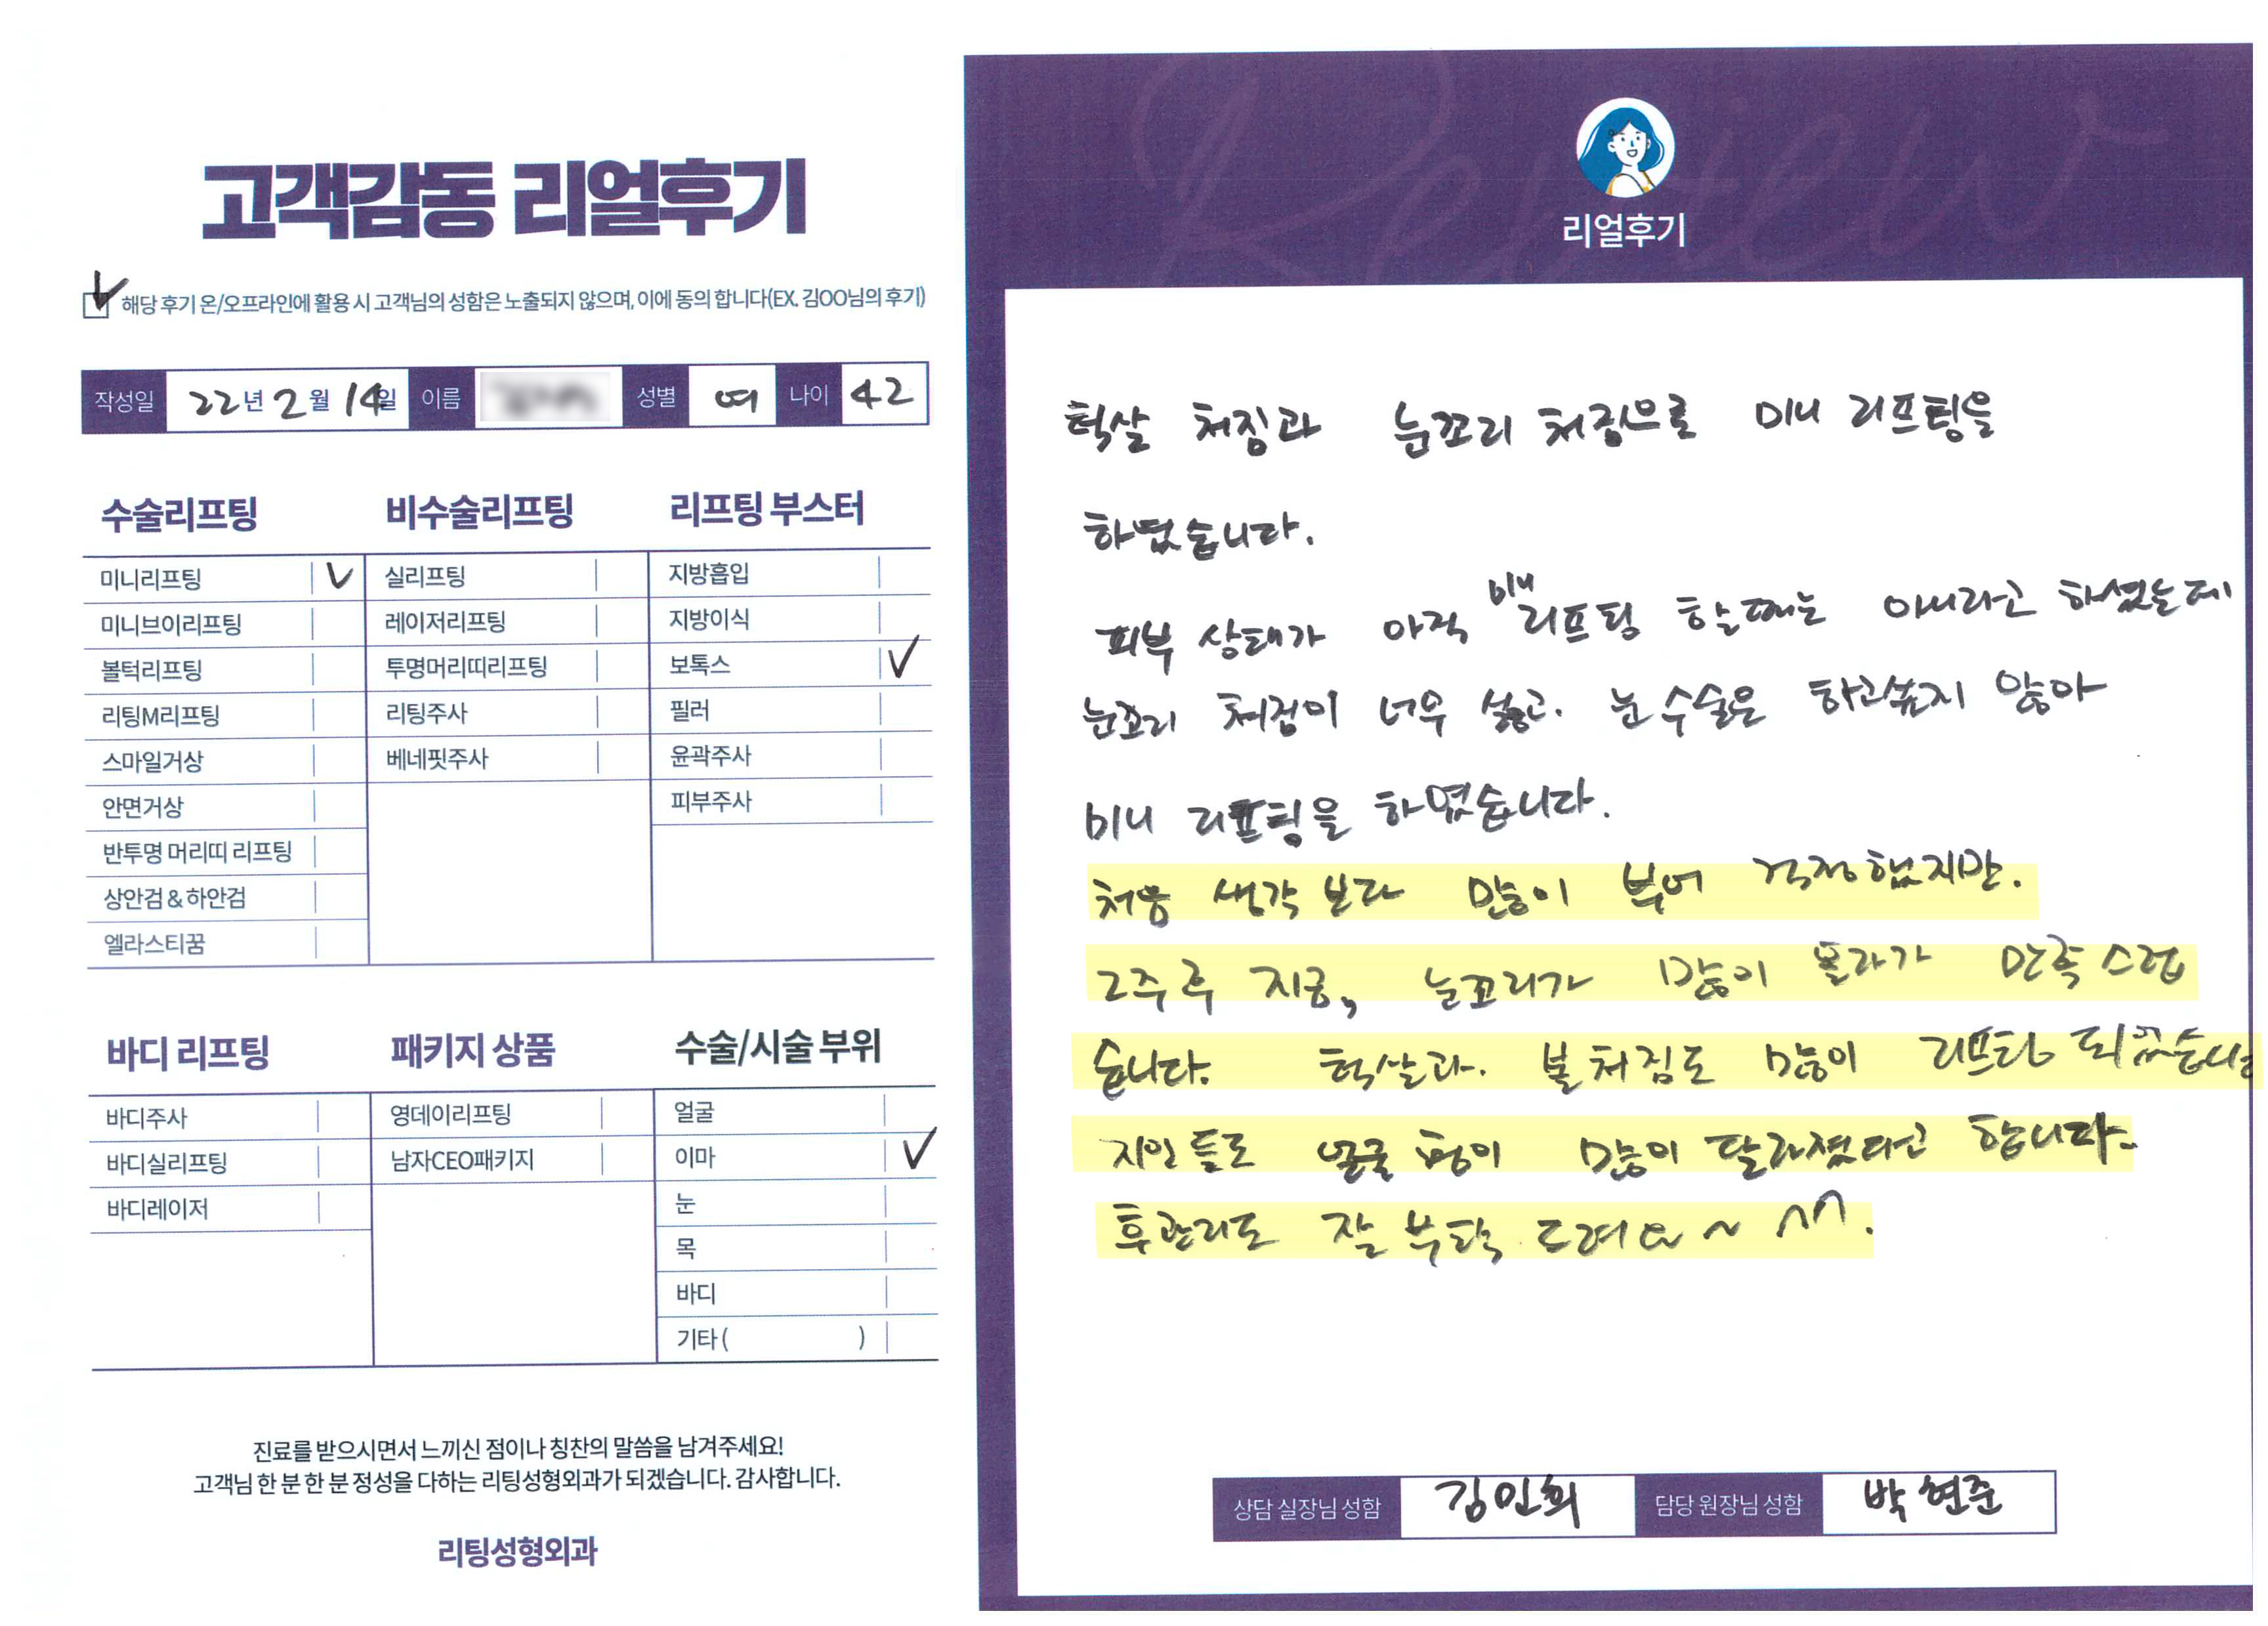 고객감동 리얼후기
해당 후기 온/오프라인에 활용 시 고객님의 성함은 노출되지 않으며, 이에 동의 합니다(EX. 김OO님의 후기)
작성일 22년 2월 14일 이름 성별 여 나이 42
수술리프팅
미니리프팅 ✓
미니브이리프팅
볼턱리프팅
리팅M리프팅
스마일거상
안면거상
반투명 머리띠 리프팅
상안검 & 하안검
엘라스티꿈
비수술리프팅
실리프팅
레이저리프팅
투명머리띠리프팅
리팅주사
베네핏주사
리프팅 부스터
지방흡입
지방이식
보톡스 ✓
필러
윤곽주사
피부주사
바디 리프팅
바디주사
바디실리프팅
바디레이저
패키지 상품
영데이리프팅
남자CEO패키지
수술/시술 부위
얼굴
이마 ✓
눈
목
바디
기타 ( )
진료를 받으시면서 느끼신 점이나 칭찬의 말씀을 남겨주세요!
고객님 한 분 한 분 정성을 다하는 리팅성형외과가 되겠습니다. 감사합니다.
리팅성형외과
Review
리얼후기
턱살 처짐과 눈꼬리 처짐으로 미니 리프팅을
하였습니다.
피부 상태가 아직 미니 리프팅 할때는 아니라고 하셨는데
눈꼬리 처짐이 너무 싫고. 눈 수술은 하고싶지 않아
미니 리프팅을 하였습니다.
처음 생각 보다 많이 부어 걱정했지만.
2주 후 지금, 눈꼬리가 많이 올라가 만족 스럽
습니다. 턱살과. 볼처짐도 많이 리프팅 되었습니다
지인 들도 얼굴 형이 많이 달라졌다고 합니다.
후관리도 잘 부탁 드려요~ ^^.
상담 실장님 성함 김민희 담당 원장님 성함 박현준